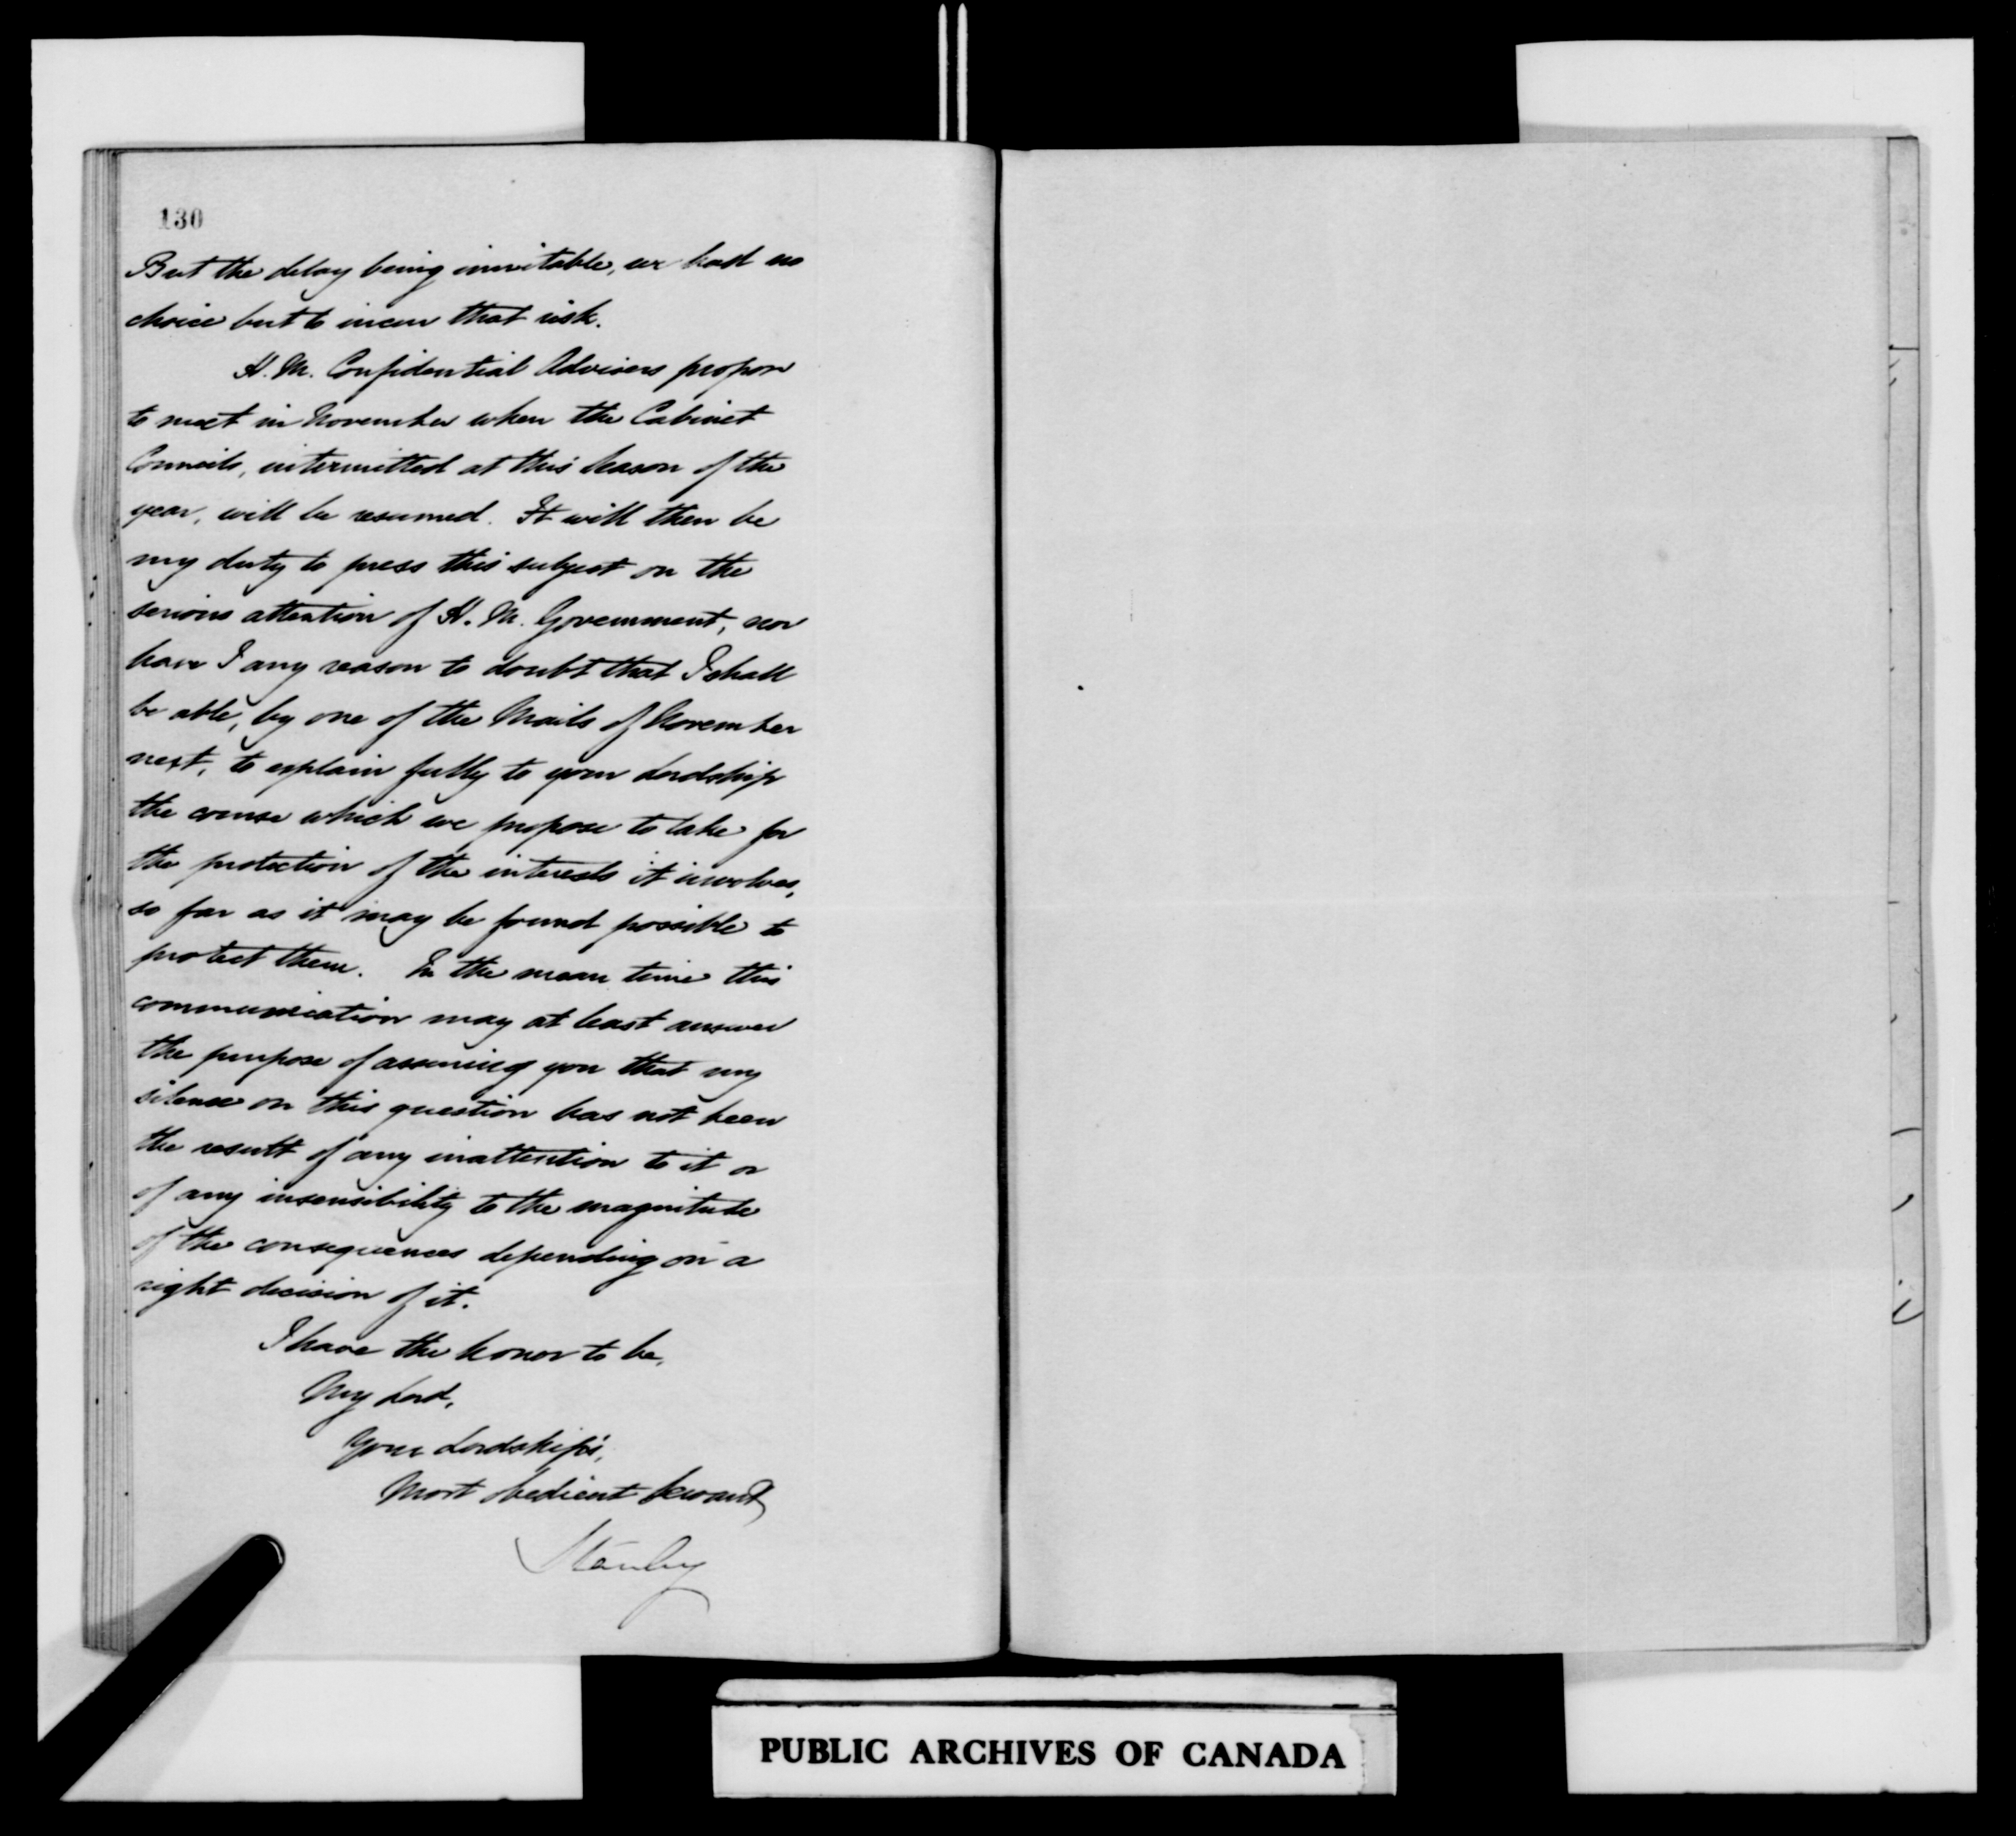 130
But the delay being inevitable, we had no
choice but to incur that risk.
H. M. Confidential Advisers propose
to meet in November when the Cabinet
Councils, intermitted at this season of the
year, will be resumed. It will then be
my duty to press this subject on the
serious attention of H. M. Government, nor
have I any reason to doubt that I shall
be able, by one of the Mails of November
next, to explain fully to your Lordship
the course which we propose to take for
the protection of the interests it involves,
so far as it may be found possible to
protect them. In the mean time this
communication may at least answer
the purpose of assuring you that my
silence on this question has not been
the result of any inattention to it or
of any insensibility to the magnitude
of the consequences depending on a
right decision of it.
I have the honor to be,
My Lord,
Your Lordship's,
Most obedient Servant
Stanley
PUBLIC ARCHIVES OF CANADA